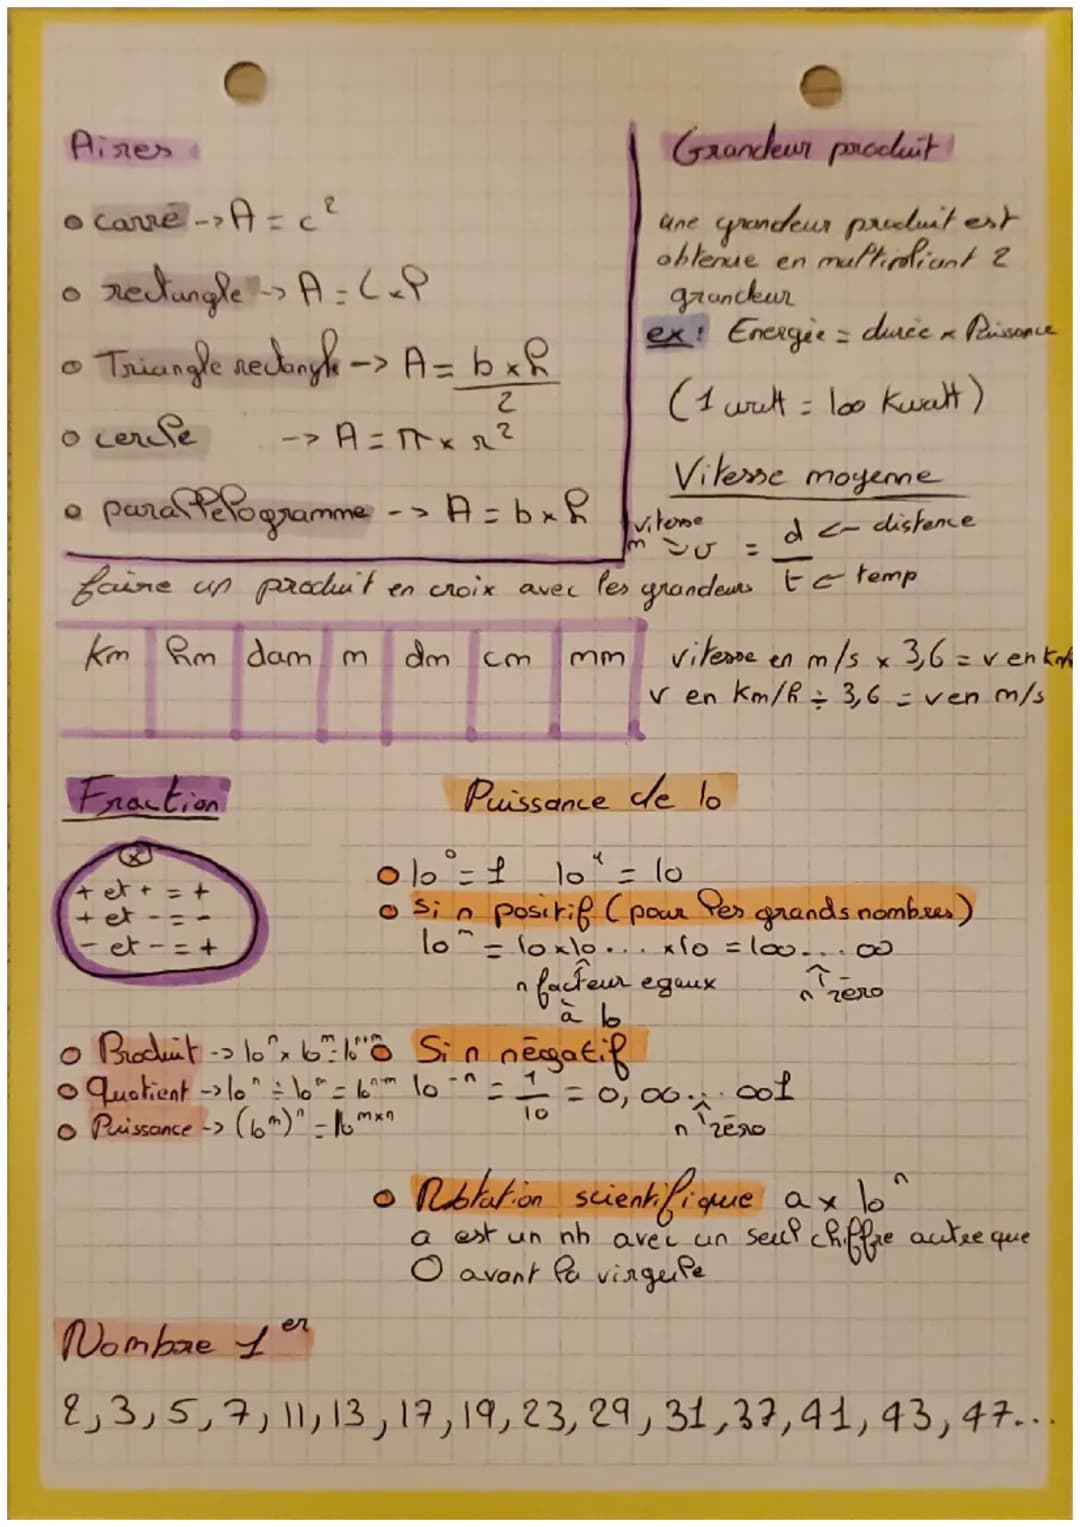 Aires
• carré -> A = c²
• rectangle -> A = L x l
• Triangle rectangle -> A = b x h / 2
• cercle -> A = π x r²
• parallélogramme --> A = b x h
Grandeur produit
une grandeur produit est
obtenue en multipliant 2
grandeur
ex: Energie = durée x Puissance
(1 watt = 100 Kwatt)
Vitesse moyenne
vitesse m = v = d <- distence
t <- temp
faire un produit en croix avec les grandeurs
km hm dam m dm cm mm
vitesse en m/s x 3,6 = v en km/h
v en km/h ÷ 3,6 = v en m/s
Fraction
(x)
+ et + = +
+ et - = -
- et - = +
Puissance de 10
• 10⁰ = 1 10¹ = 10
• Si n positif (pour les grands nombres)
10ⁿ = 10x10... x10 = 100...00
n facteur egaux
à 10
n zéro
• Produit -> 10ⁿ x 10ᵐ = 10ⁿ⁺ᵐ
• Quotient -> 10ⁿ ÷ 10ᵐ = 10ⁿ⁻ᵐ
• Puissance -> (10ᵐ)ⁿ = 10ᵐˣⁿ
• Si n négatif
10⁻ⁿ = 1/10 = 0,00...001
n zéro
• Notation scientifique a x 10ⁿ
a est un nb avec un seul chiffre autre que
0 avant la virgule
Nombre 1er
2, 3, 5, 7, 11, 13, 17, 19, 23, 29, 31, 37, 41, 43, 47...